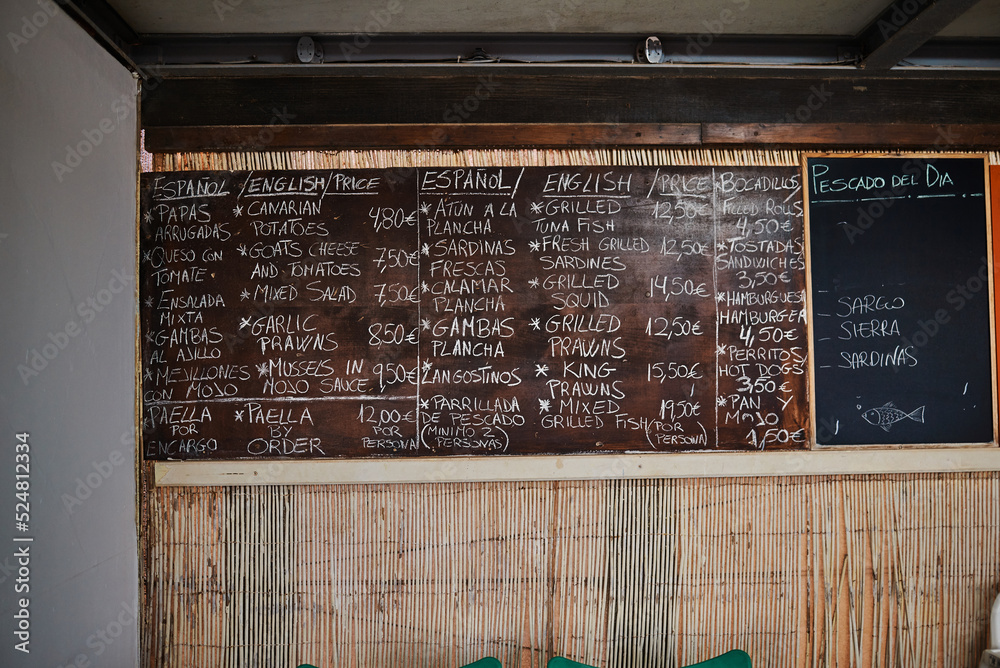 ESPAÑOL / ENGLISH / PRICE
* PAPAS ARRUGADAS * CANARIAN POTATOES 4,80€
* QUESO CON TOMATE * GOATS CHEESE AND TOMATOES 7,50€
* ENSALADA MIXTA * MIXED SALAD 7,50€
* GAMBAS AL AJILLO * GARLIC PRAWNS 8,50€
* MEJILLONES CON MOJO * MUSSELS IN MOJO SAUCE 9,50€
PAELLA POR ENCARGO * PAELLA BY ORDER 12,00€ POR PERSONA
ESPAÑOL / ENGLISH / PRICE
* ATÚN A LA PLANCHA * GRILLED TUNA FISH 12,50€
* SARDINAS FRESCAS * FRESH GRILLED SARDINES 12,50€
* CALAMAR PLANCHA * GRILLED SQUID 14,50€
* GAMBAS PLANCHA * GRILLED PRAWNS 12,50€
* LANGOSTINOS * KING PRAWNS 15,50€
* PARRILLADA DE PESCADO (MINIMO 2 PERSONAS) * MIXED GRILLED FISH 19,50€ (POR PERSONA)
* BOCADILLOS
FILLED ROLLS
4,50€
* TOSTADAS
SANDWICHES
3,50€
* HAMBURGUESA
HAMBURGER
4,50€
* PERRITOS
HOT DOGS
3,50€
* PAN Y
MOJO
1,50€
PESCADO DEL DIA
- SARGO
- SIERRA
- SARDINAS
Adobe Stock | #524812334